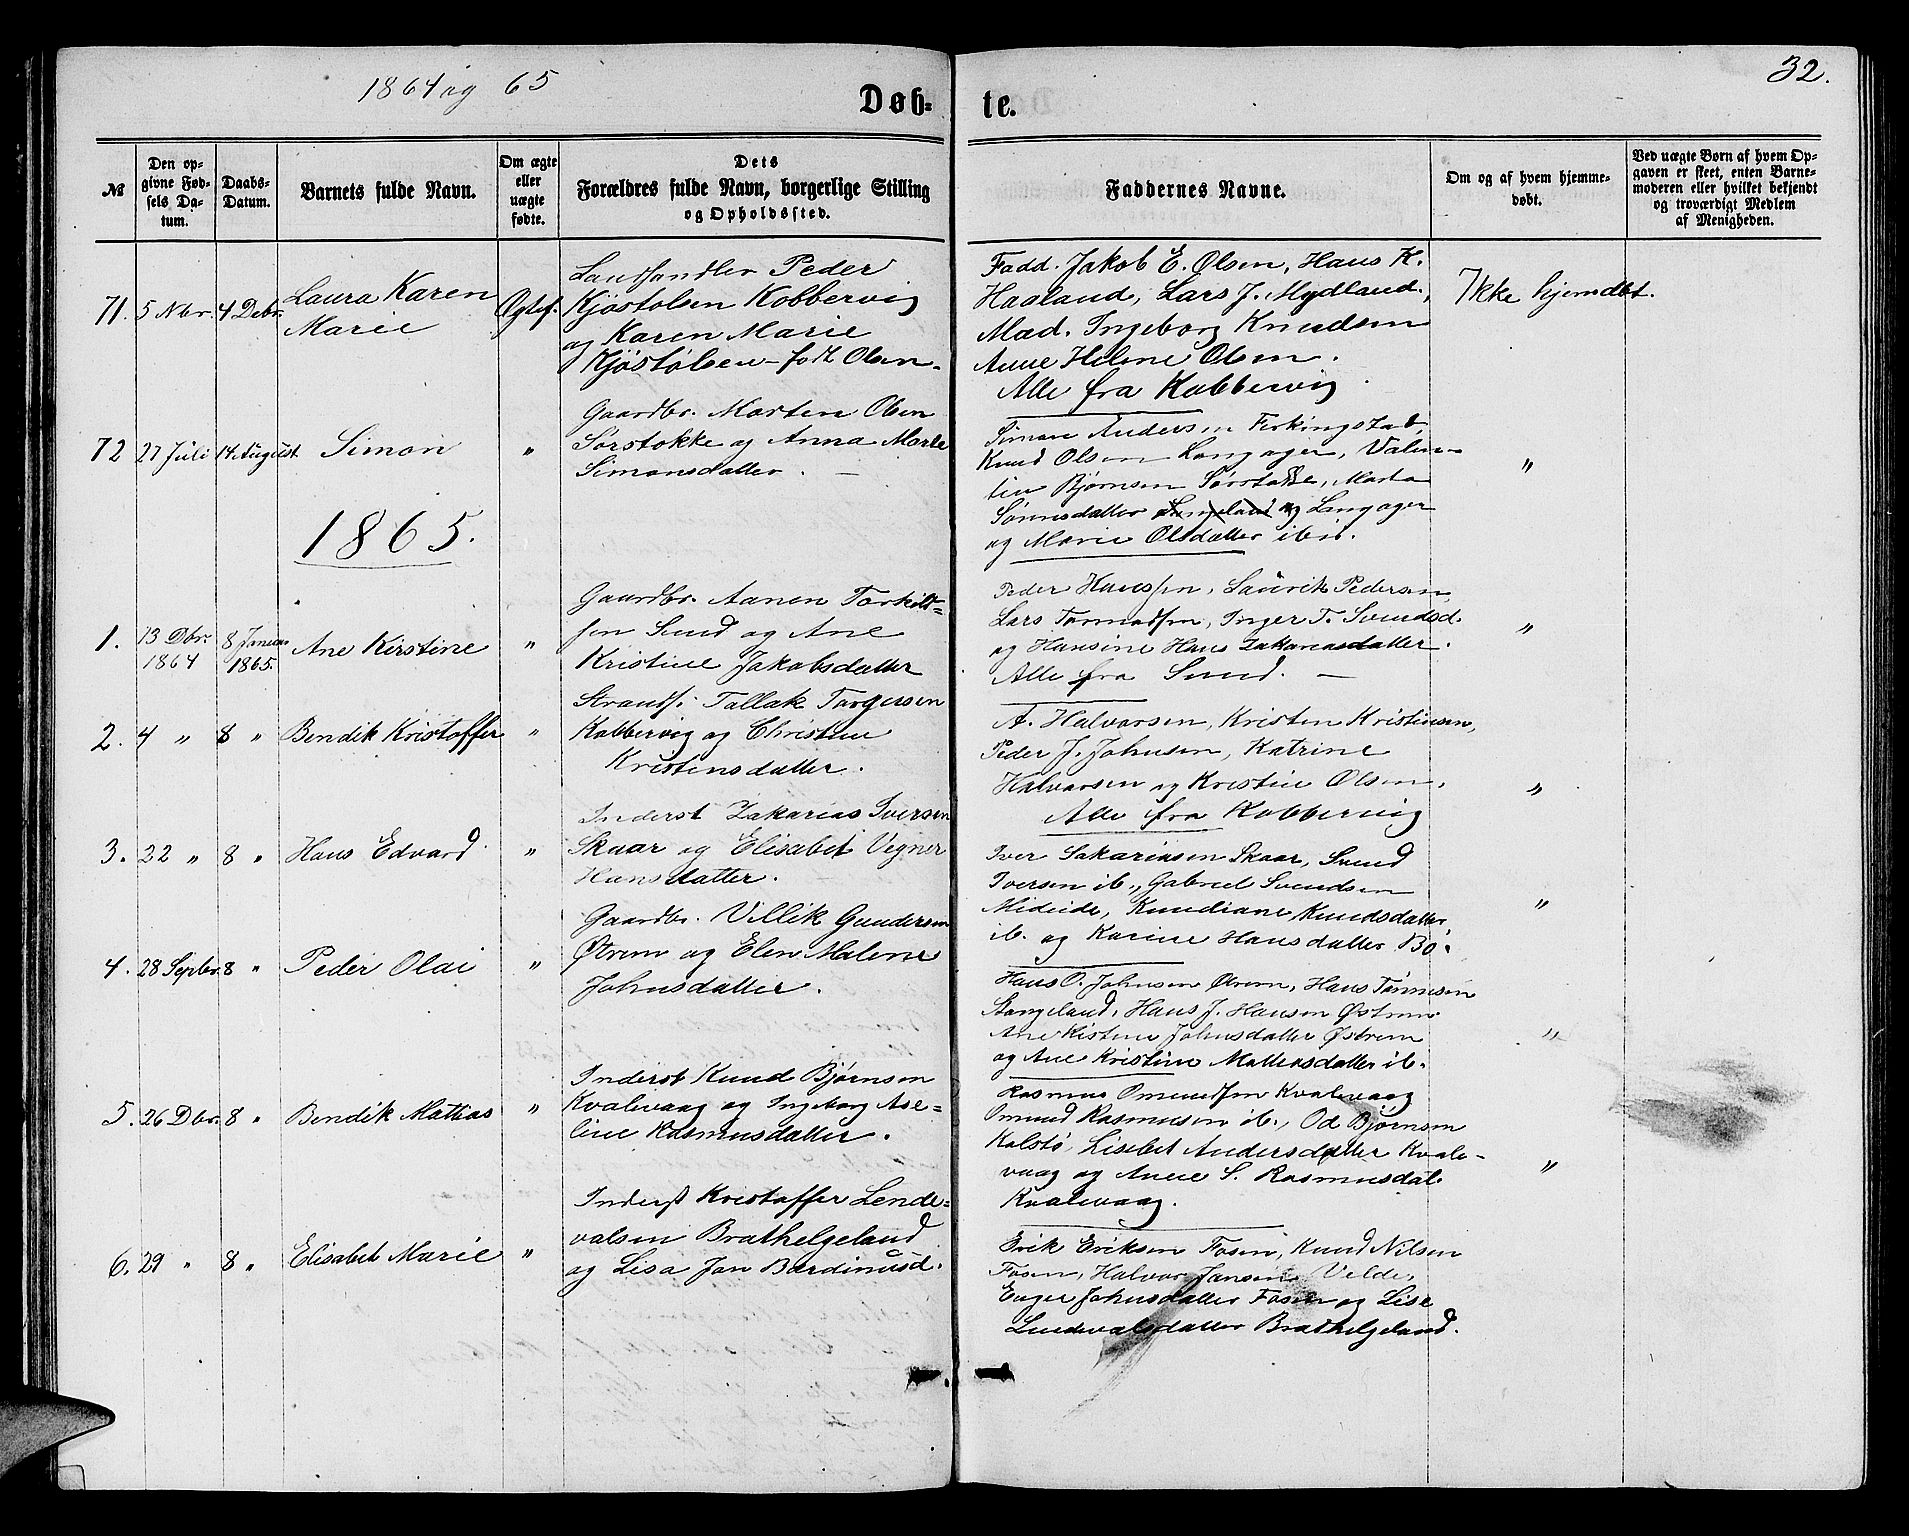 1864 og 65
32.
Døb-
te.
№
Den op-
givne Fød-
sels Da-
tum.
Daabs-
Datum.
Barnets fulde Navn.
Om ægte
eller
uægte
fødte.
Dets
Forældres fulde Navn, borgerlige Stilling
og Opholdssted.
Faddernes Navne.
Om og af hvem hjemme-
døbt.
Ved uægte Børn af hvem Op-
gaven er skeet, enten Barne-
moderen eller hvilket bekjendt
og troværdigt Medlem
af Menigheden.
71. 5 Nbr. 4 Debr.
Laura Karen
Marie
Ægtef.
Landhandler Peder
Kjøstolsen Kobbervig
og Karen Marie
Kjøstølsen født Olsen.
Fadd. Jakob E. Olsen, Hans K.
Hasland, Lars J. Mydland,
Mad. Ingeborg Knudsen
Anne Helene Olsen.
Alle fra Kobbervig.
Ikke hjemdbt.
72 27 Juli 14 August
Simon
"
Gaardbr. Morten Olsen
Sørstokke og Anna Marte
Simonsdatter.
Simon Andersen Ferkingstad,
Knud Olsen Langager, Valen-
tin Bjørnsen Sørstokke, Marta
Sønnesdatter Langager
og Marie Olsdatter ibid.
"
1865.
1. 13 Dbr. 1864
8 Januar 1865.
Ane Kirstine
"
Gaardbr. Aanen Torkild-
sen Sund og Ane
Kristine Jakobsdatter
Peder Hanssen, Laurik Pedersen,
Lars Tormodsen, Inger T. Svendsd.
og Hansine Hans Zakariasdatter.
Alle fra Sund.
"
2. 4 " 8 "
Bendik Kristoffer
"
Strands. Tallak Torgersen
Kobbervig og Christine
Kristensdatter.
A. Halvorsen, Kristen Kristensen,
Peder J. Johnsen, Katrine
Halvorsen og Kristine Olsen.
Alle fra Kobbervig
"
3. 22 " 8 "
Hans Edvard
"
Inderst Zakarias Iversen
Skaar og Elisabet Vegner
Hansdatter.
Iver Sakariasen Skaar, Svend
Iversen ib., Gabriel Svendsen
Mideide, Knudiane Knudsdatter,
ib. og Karine Hansdatter Bø.
"
4. 28 Septbr. 8 "
Peder Olai
"
Gaardbr. Villik Gundersen
Østrem og Elen Malene
Johnsdatter.
Hans O. Johnsen Østrem, Hans Tønnesen
Stangeland, Hans J. Hansen Østrem
Ane Kistine Johnsdatter Østrem
og Ane Kristine Mattiasdatter ib.
"
5. 26 Dbr. 8 "
Bendik Mattias
"
Inderst Knud Bjørnsen
Kvalevaag og Ingeborg Ase-
line Rasmusdatter.
Rasmus Omundsen Kvalevaag
Omund Rasmusen ib., Od Bjørnsen
Kolstø, Lisebet Andersdatter Kvale-
vaag og Anne S. Rasmusdat.
Kvalevaag.
"
6. 29 " 8 "
Elisabet Marie
"
Inderst Kristoffer Lende-
valsen Brathelgeland
og Lisa Jan Bardinusd.
Erik Eriksen Fosen, Knud Nilsen
Fosen, Halvor Jansen Velde,
Enger Johnsdatter Fosen og Lise
Lendevalsdatter Brathelgeland.